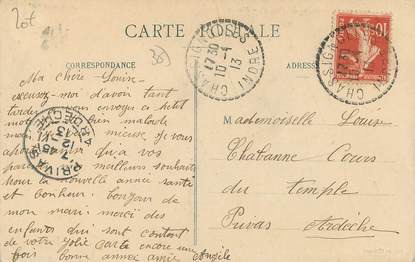 Lot
30
CARTE POSTALE
CORRESPONDANCE
ADRESSE
CHASSIGNOLLES INDRE
17 30
10 -1
13
PRIVAS ARDÈCHE
7 45
12 -1
13
10
Ma Chère Louise
excusez-moi d'avoir tant
tardé vous envoyer ce petit
mot bien malade
mieuse je vous
meilleurs souhaits
pour la nouvelle année santé
et bonheur bonjour de
mon mari merci des
enfants qui sont content
de votre jolie carte encore une
fois bonne année amie Angèle
Mademoiselle Louise
Chabanne Cours
du Temple
Privas Ardèche